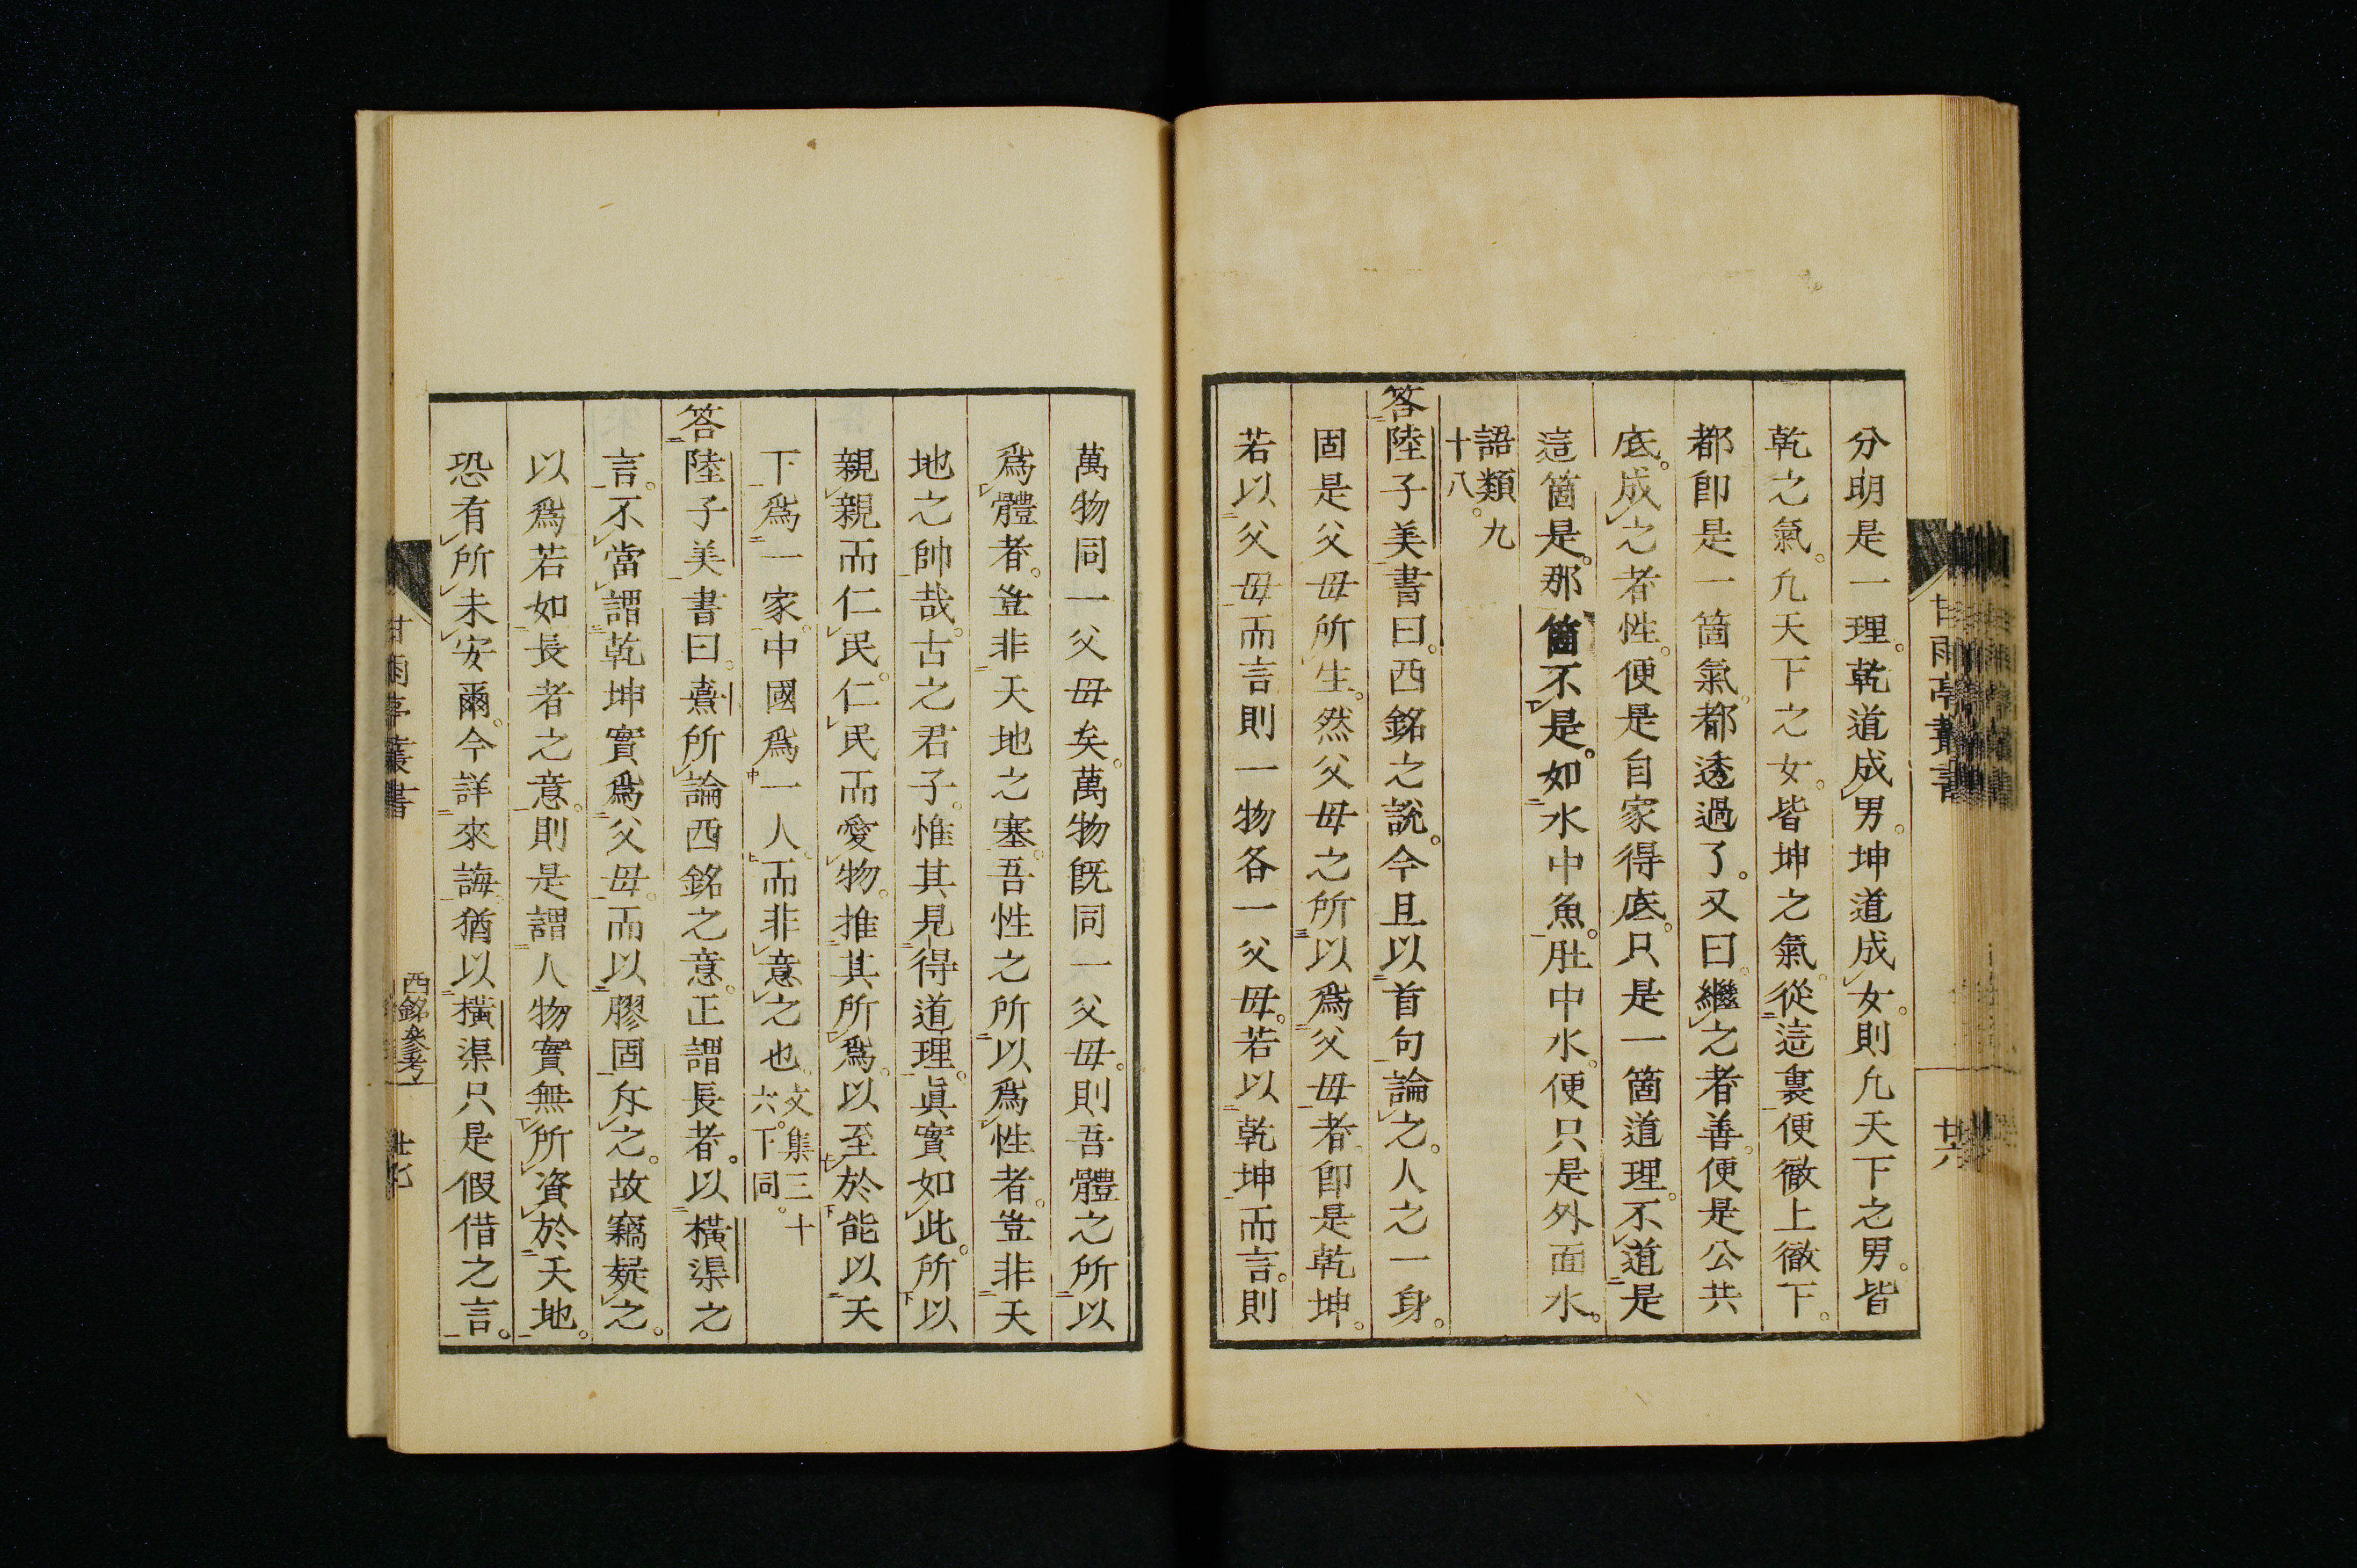 分明是一理。乾道成男。坤道成女。則凢天下之男。皆
乾之氣。凢天下之女。皆坤之氣。從這裏便徹上徹下。
都卽是一箇氣。都透過了。又曰。繼之者善。便是公共
底。成之者性。便是自家得底。只是一箇道理。不道是
這箇是。那箇不是。如水中魚。肚中水。便只是外面水。
語類九
十八。
答陸子美書曰。西銘之說。今且以首句論之。人之一身。
固是父母所生。然父母之所以爲父母者。卽是乾坤。
若以父母而言。則一物各一父母。若以乾坤而言。則
甘雨亭叢書
廿六
萬物同一父母矣。萬物旣同一父母。則吾體之所以
爲體者。豈非天地之塞。吾性之所以爲性者。豈非天
地之帥哉。古之君子。惟其見得道理。眞實如此。所以
親親而仁民。仁民而愛物。推其所爲。以至於能以天
下爲一家。中國爲一人。而非意之也。文集三十
六。下同。
答陸子美書曰。熹所論西銘之意。正謂長者。以橫渠之
言。不當謂乾坤實爲父母。而以膠固斥之。故竊疑之。
以爲若如長者之意。則是謂人物實無所資於天地。
恐有所未安爾。今詳來誨。猶以橫渠只是假借之言。
甘雨亭叢書
西銘參考